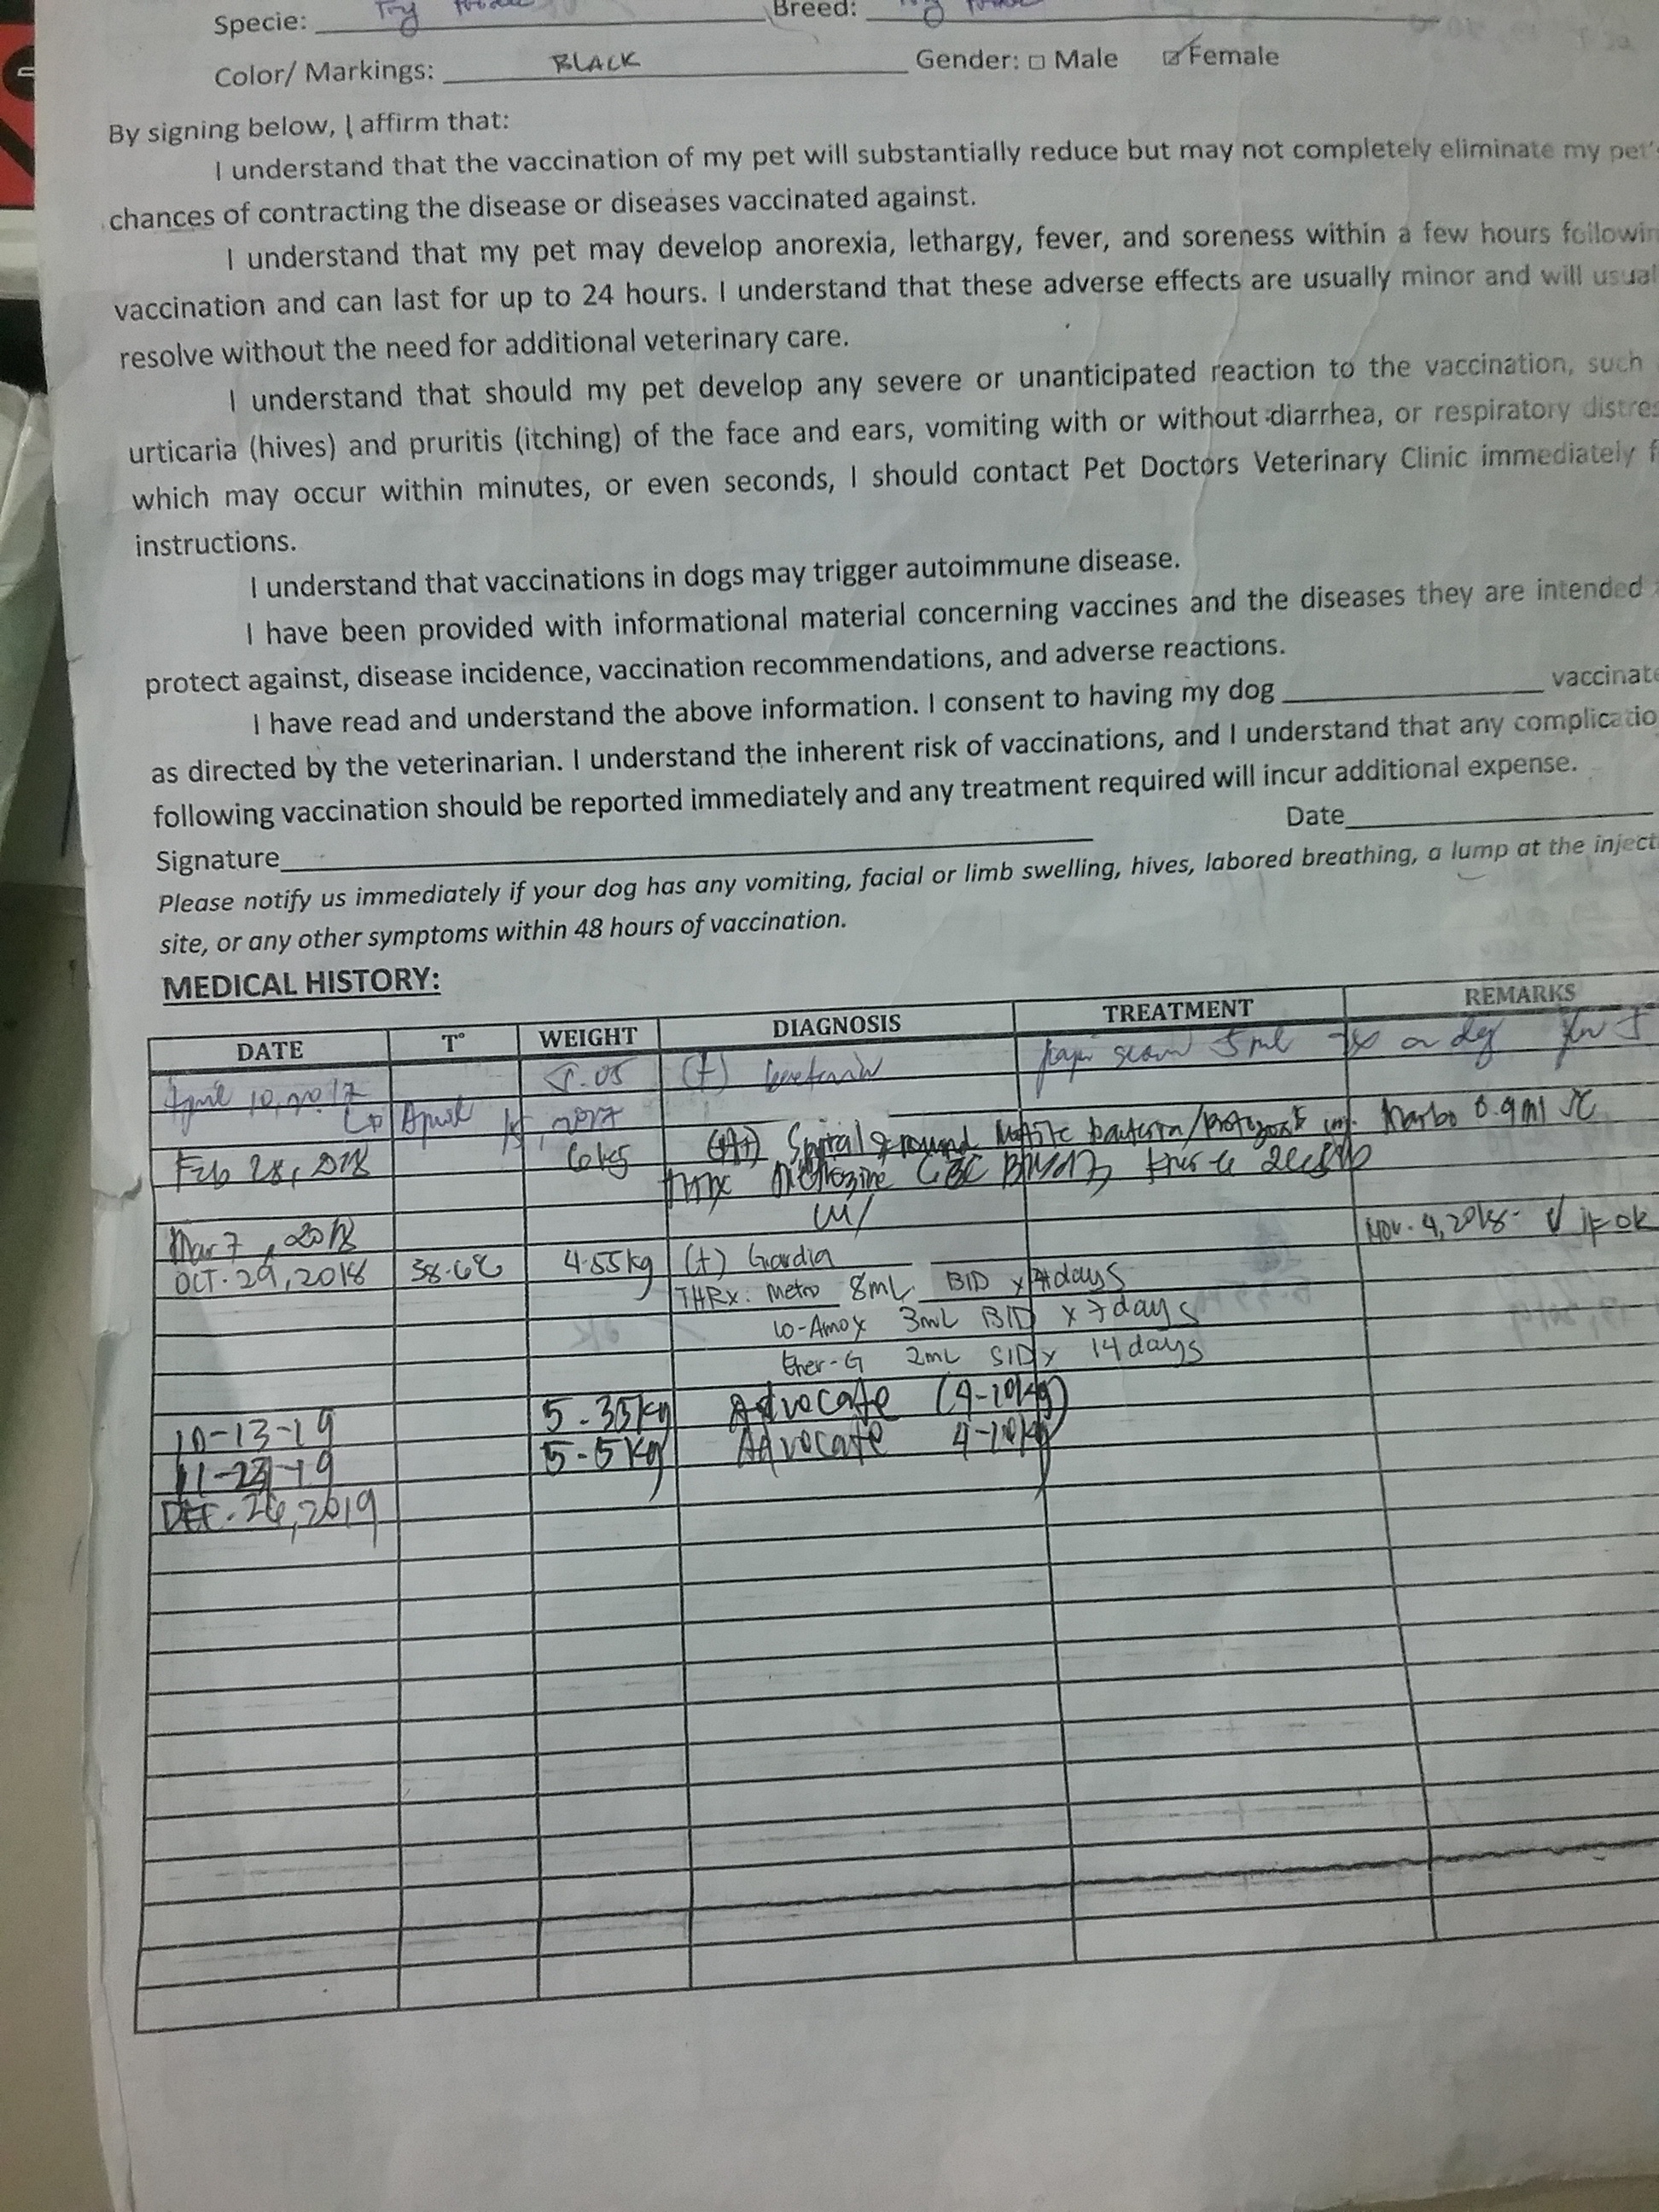 Specie: Toy Breed: Toy
Color/ Markings: BLACK Gender: □ Male ☑ Female
By signing below, I affirm that:
I understand that the vaccination of my pet will substantially reduce but may not completely eliminate my pet's
chances of contracting the disease or diseases vaccinated against.
I understand that my pet may develop anorexia, lethargy, fever, and soreness within a few hours followin
vaccination and can last for up to 24 hours. I understand that these adverse effects are usually minor and will usual
resolve without the need for additional veterinary care.
I understand that should my pet develop any severe or unanticipated reaction to the vaccination, such
urticaria (hives) and pruritis (itching) of the face and ears, vomiting with or without diarrhea, or respiratory distres
which may occur within minutes, or even seconds, I should contact Pet Doctors Veterinary Clinic immediately f
instructions.
I understand that vaccinations in dogs may trigger autoimmune disease.
I have been provided with informational material concerning vaccines and the diseases they are intended
protect against, disease incidence, vaccination recommendations, and adverse reactions.
I have read and understand the above information. I consent to having my dog ____ vaccinate
as directed by the veterinarian. I understand the inherent risk of vaccinations, and I understand that any complicatio
following vaccination should be reported immediately and any treatment required will incur additional expense.
Signature____ Date____
Please notify us immediately if your dog has any vomiting, facial or limb swelling, hives, labored breathing, a lump at the inject
site, or any other symptoms within 48 hours of vaccination.
MEDICAL HISTORY:
DATE T° WEIGHT DIAGNOSIS TREATMENT REMARKS
April 10, 2017 5.05 (+) 5ml
April 2017
Feb 28, 2018 6kg Spiral & round Motile bacteria/ 0.9ml
CBC
Mar 7, 2018
Nov. 4, 2018- √ if ok
OCT. 29, 2018 38.6°C 4.55kg (+) Giardia
THRx: Metro 8mL BID x days
Co-Amox 3mL BID x 7 days
Ener-G 2mL SID x 14 days
10-13-19 5.35kg Advocate (4-10kg)
11-23-19 5.5kg Advocate 4-10kg
DEC. 26, 2019